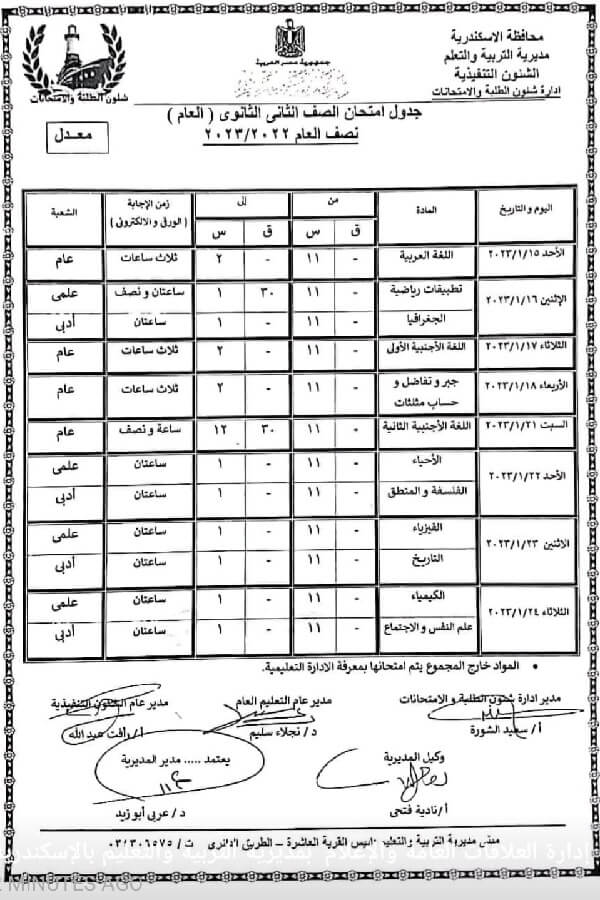 محافظة الاسكندرية
مديرية التربية والتعلم
الشئون التنفيذية
إدارة شئون الطلبة والامتحانات
جمهورية مصر العربية
شئون الطلبة والامتحانات
جدول امتحان الصف الثانى الثانوى ( العام )
نصف العام ٢٠٢٣/٢٠٢٢
معدل
اليوم والتاريخ | المادة | من | إلى | زمن الإجابة ( الورقى والالكترونى ) | الشعبة
ق | س | ق | س
الأحد ٢٠٢٣/١/١٥ | اللغة العربية | - | ١١ | - | ٢ | ثلاث ساعات | عام
الإثنين ٢٠٢٣/١/١٦ | تطبيقات رياضية | - | ١١ | ٣٠ | ١ | ساعتان و نصف | علمى
الجغرافيا | - | ١١ | - | ١ | ساعتان | أدبى
الثلاثاء ٢٠٢٣/١/١٧ | اللغة الأجنبية الأولى | - | ١١ | - | ٢ | ثلاث ساعات | عام
الأربعاء ٢٠٢٣/١/١٨ | جبر و تفاضل و حساب مثلثات | - | ١١ | - | ٢ | ثلاث ساعات | عام
السبت ٢٠٢٣/١/٢١ | اللغة الأجنبية الثانية | - | ١١ | ٣٠ | ١٢ | ساعة و نصف | عام
الأحد ٢٠٢٣/١/٢٢ | الأحياء | - | ١١ | - | ١ | ساعتان | علمى
الفلسفة و المنطق | - | ١١ | - | ١ | ساعتان | أدبى
الاثنين ٢٠٢٣/١/٢٣ | الفيزياء | - | ١١ | - | ١ | ساعتان | علمى
التاريخ | - | ١١ | - | ١ | ساعتان | أدبى
الثلاثاء ٢٠٢٣/١/٢٤ | الكيمياء | - | ١١ | - | ١ | ساعتان | علمى
علم النفس و الاجتماع | - | ١١ | - | ١ | ساعتان | أدبى
• المواد خارج المجموع يتم امتحانها بمعرفة الادارة التعليمية.
مدير ادارة شئون الطلبة و الامتحانات
أ/ سعيد الشورة
مدير عام التعليم العام
د/ نجلاء سليم
مدير عام الشئون التنفيذية
أ/ رأفت عبدالله
وكيل المديرية
أ/نادية فتحى
يعتمد ..... مدير المديرية
د/ عربى أبو زيد
مبنى مديرية التربية والتعليم القرية العاشرة - الطريق الدائرى ت/ ٠٣/٣٠٦٥٧٥
إدارة العلاقات العامة والإعلام بمديرية التربية والتعليم بالإسكندرية
MINUTES AGO